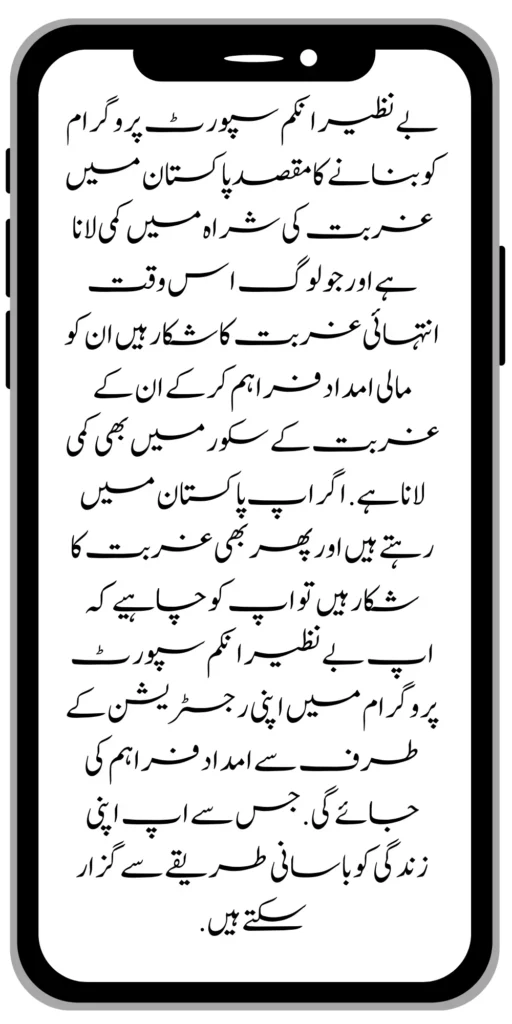 بے نظیر انکم سپورٹ پروگرام
کو بنانے کا مقصد پاکستان میں
غربت کی شراہ میں کمی لانا
ہے اور جو لوگ اس وقت
انتہائی غربت کا شکار ہیں ان کو
مالی امداد فراہم کر کے ان کے
غربت کے سکور میں بھی کمی
لانا ہے. اگر اپ پاکستان میں
رہتے ہیں اور پھر بھی غربت کا
شکار ہیں تو اپ کو چاہیے کہ
اپ بے نظیر انکم سپورٹ
پروگرام میں اپنی رجسٹریشن کے
طرف سے امداد فراہم کی
جائے گی. جس سے اپ اپنی
زندگی کو باسانی طریقے سے گزار
سکتے ہیں.